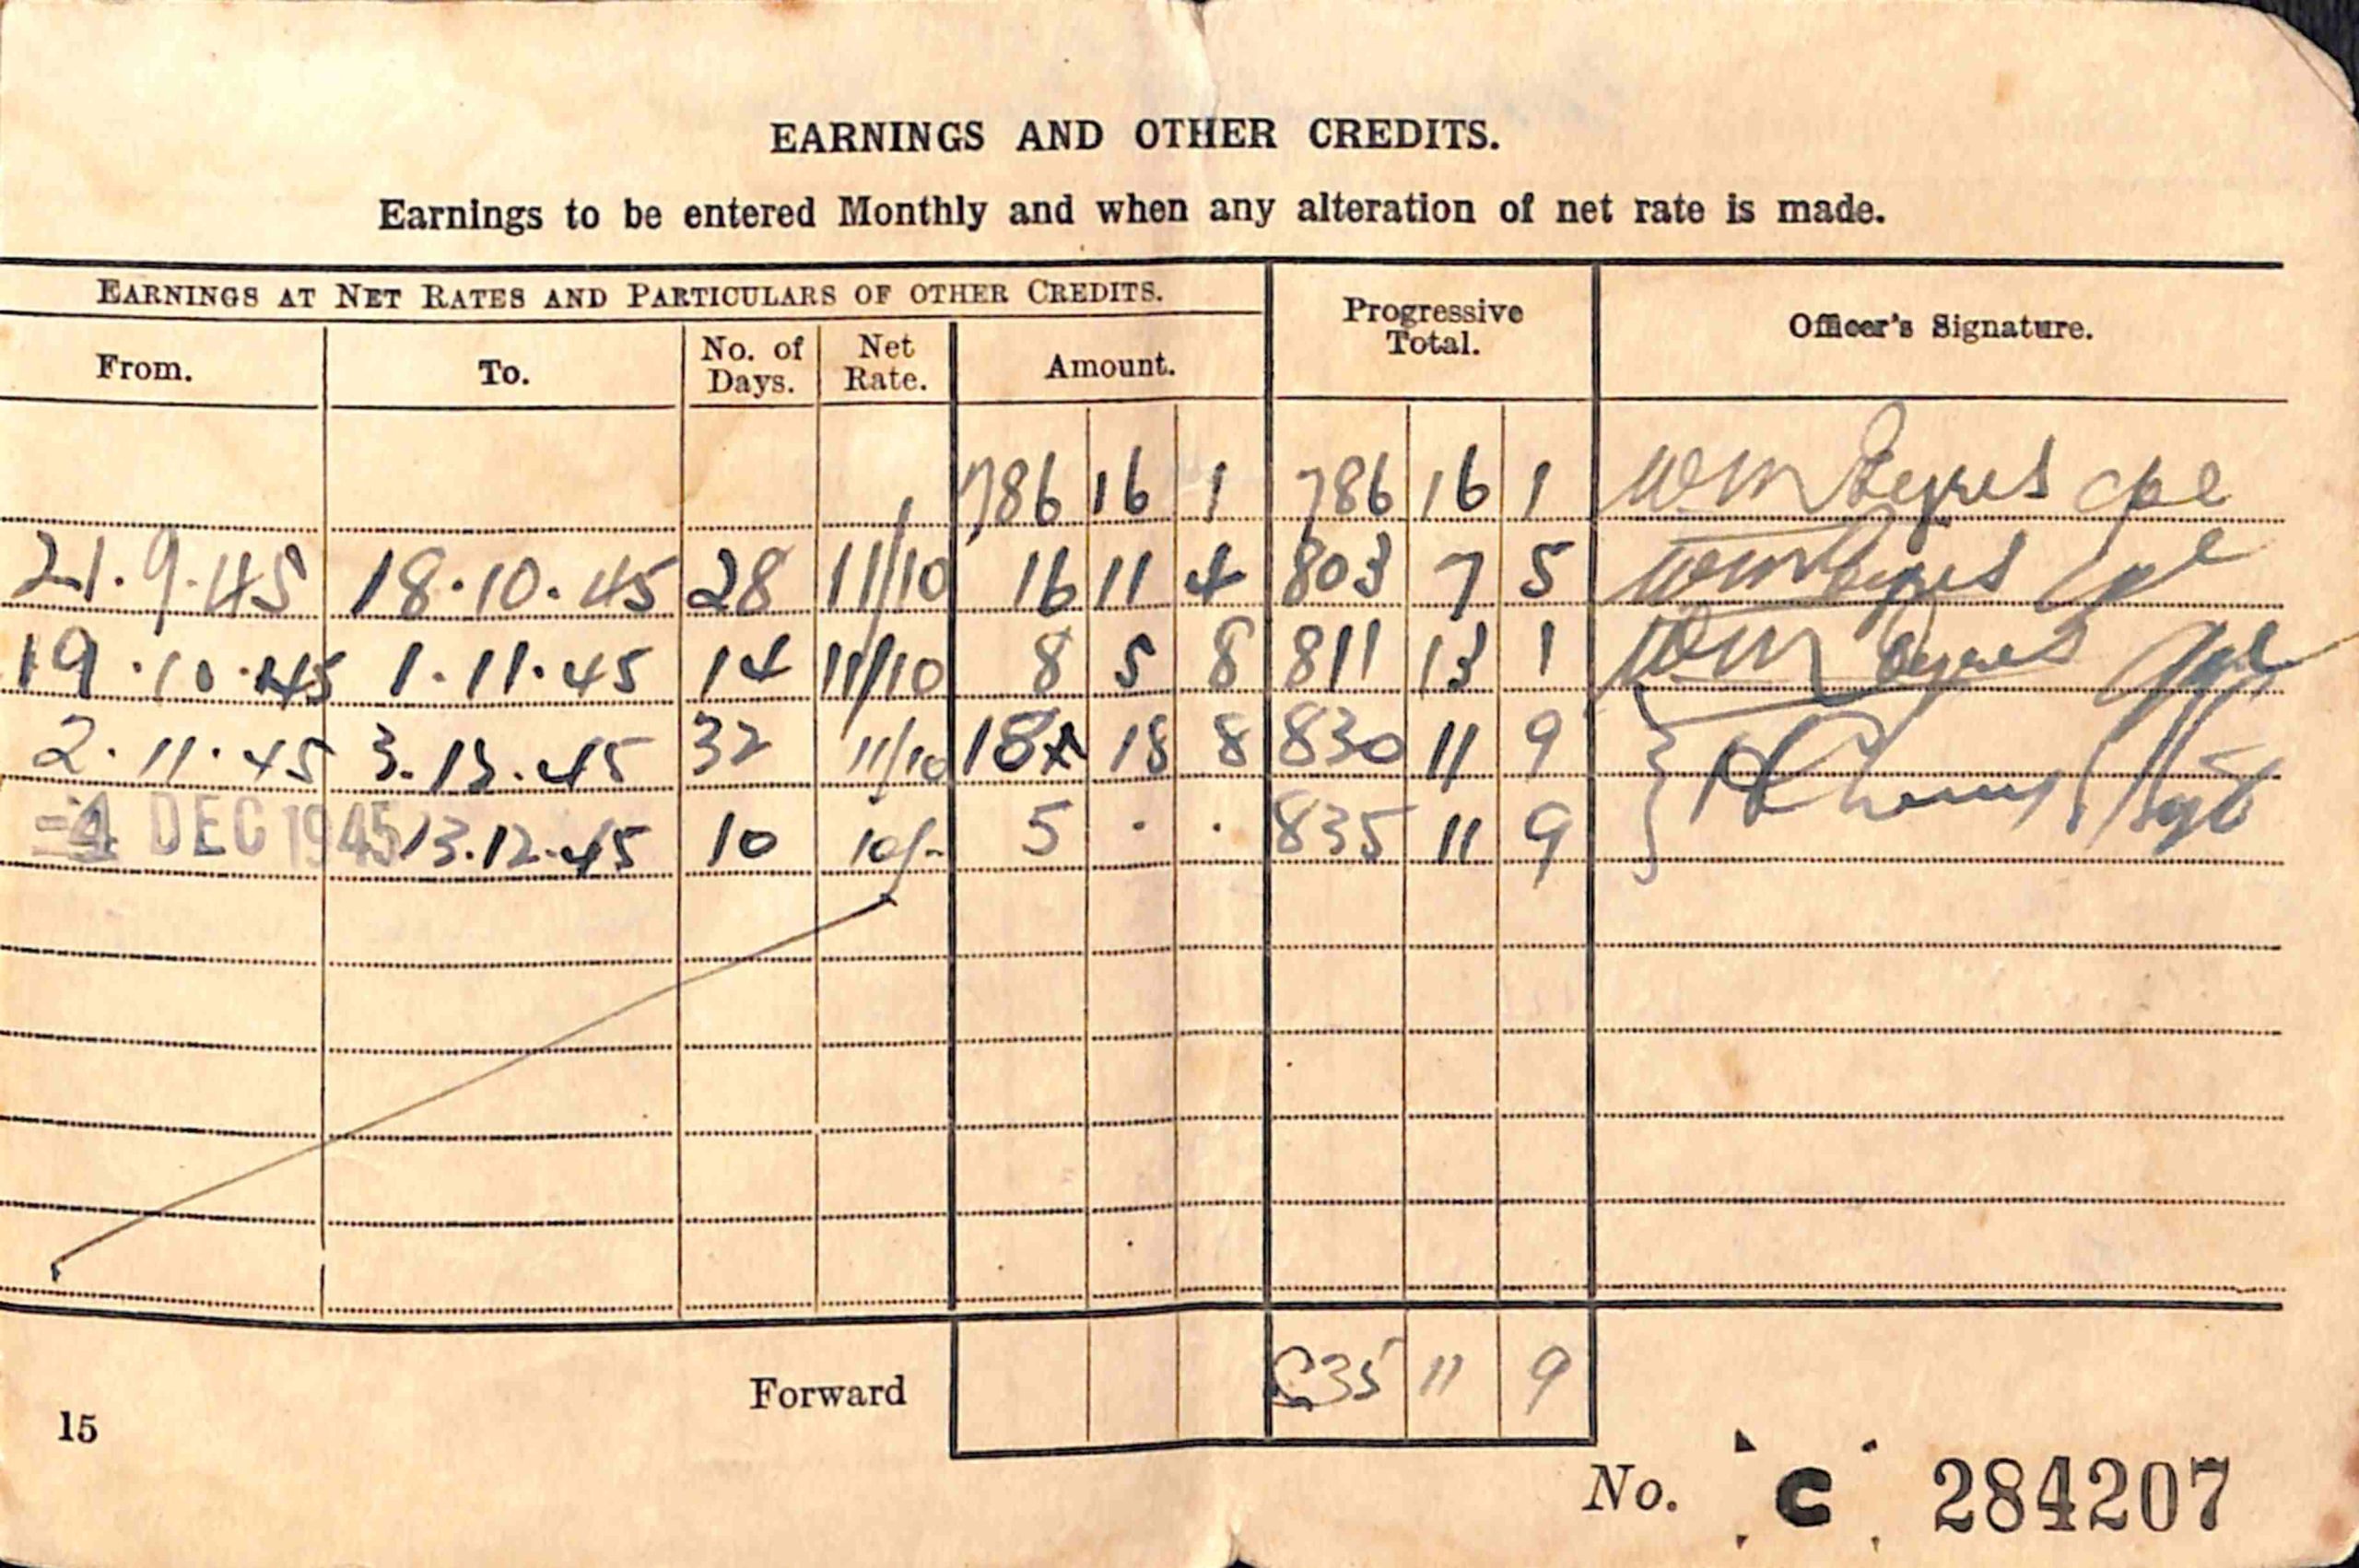 EARNINGS AND OTHER CREDITS.
Earnings to be entered Monthly and when any alteration of net rate is made.
EARNINGS AT NET RATES AND PARTICULARS OF OTHER CREDITS. Progressive Total. Officer's Signature.
From. To. No. of Days. Net Rate. Amount.
786 16 1 786 16 1 Cpl
21.9.45 18.10.45 28 11/10 16 11 4 803 7 5 Cpl
19.10.45 1.11.45 14 11/10 8 5 8 811 13 1 Cpl
2.11.45 3.12.45 32 11/10 18 18 8 830 11 9
-4 DEC 1945 13.12.45 10 10/- 5 . . 835 11 9 Sgt
Forward 835 11 9
15
No. C 284207